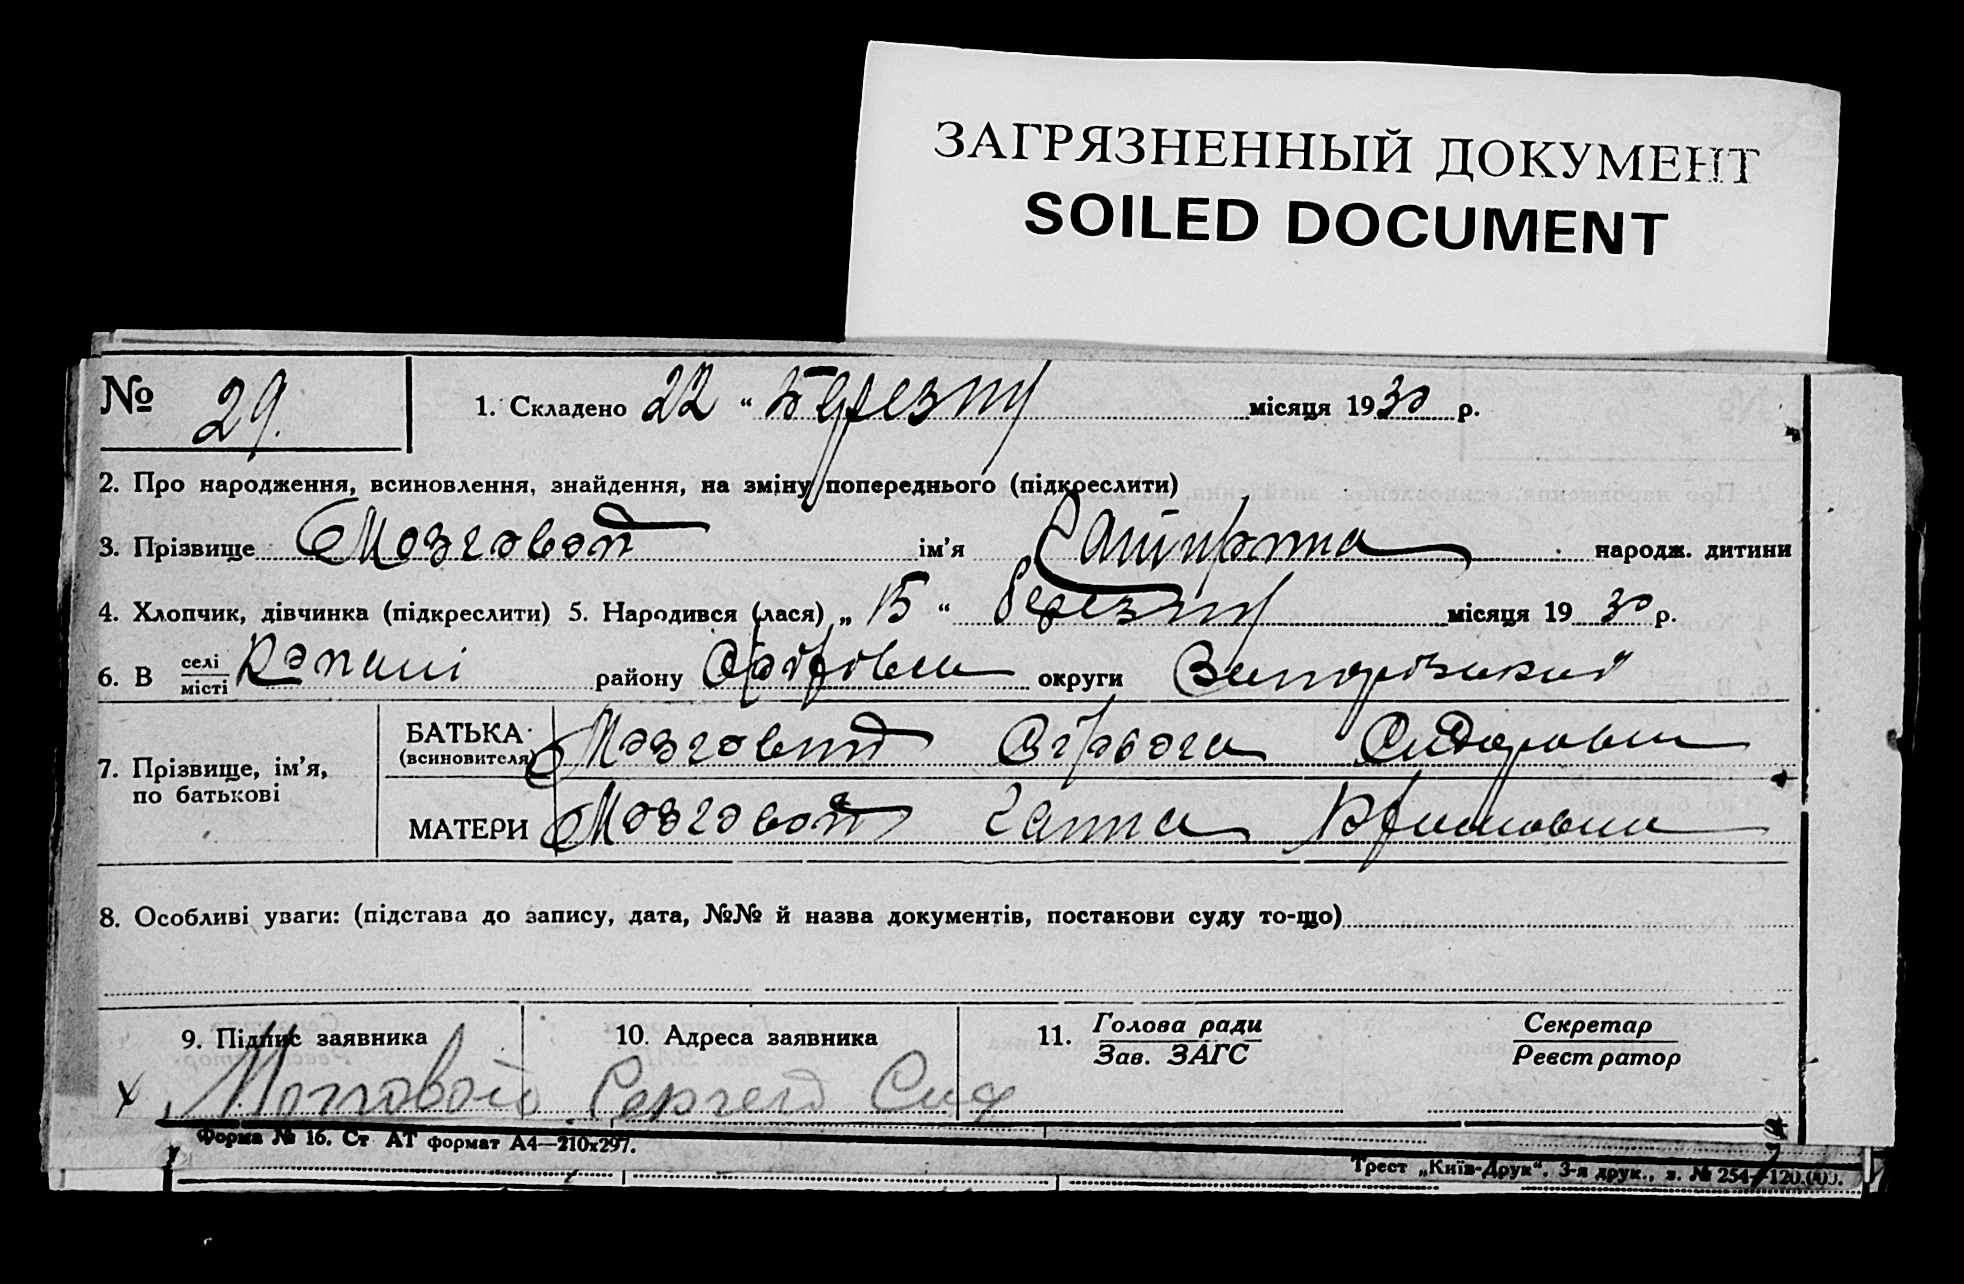 ЗАГРЯЗНЕННЫЙ ДОКУМЕНТ
SOILED DOCUMENT
№ 29. 1. Складено 22 “ Березня місяця 1930 р.
2. Про народження, всиновлення, знайдення, на зміну попереднього (підкреслити)
3. Прізвище Мозговой ім’я народж. дитини
4. Хлопчик, дівчинка (підкреслити) 5. Народився (лася) „ 15 “ березня місяця 1930 р.
6. В селі місті Копані району округи
7. Прізвище, ім’я, по батькові
БАТЬКА (всиновителя) Мозговий Сидорович
МАТЕРИ Мозговой Ганна
8. Особливі уваги: (підстава до запису, дата, №№ й назва документів, постанови суду то-що)
9. Підпис заявника 10. Адреса заявника 11. Голова ради Зав. ЗАГС Секретар Реєстратор
Сергей Сид
Форма № 16. Ст АТ формат А4—210х297.
Трест „Київ-Друк“. 3-я друк., з. № 254—120.000.